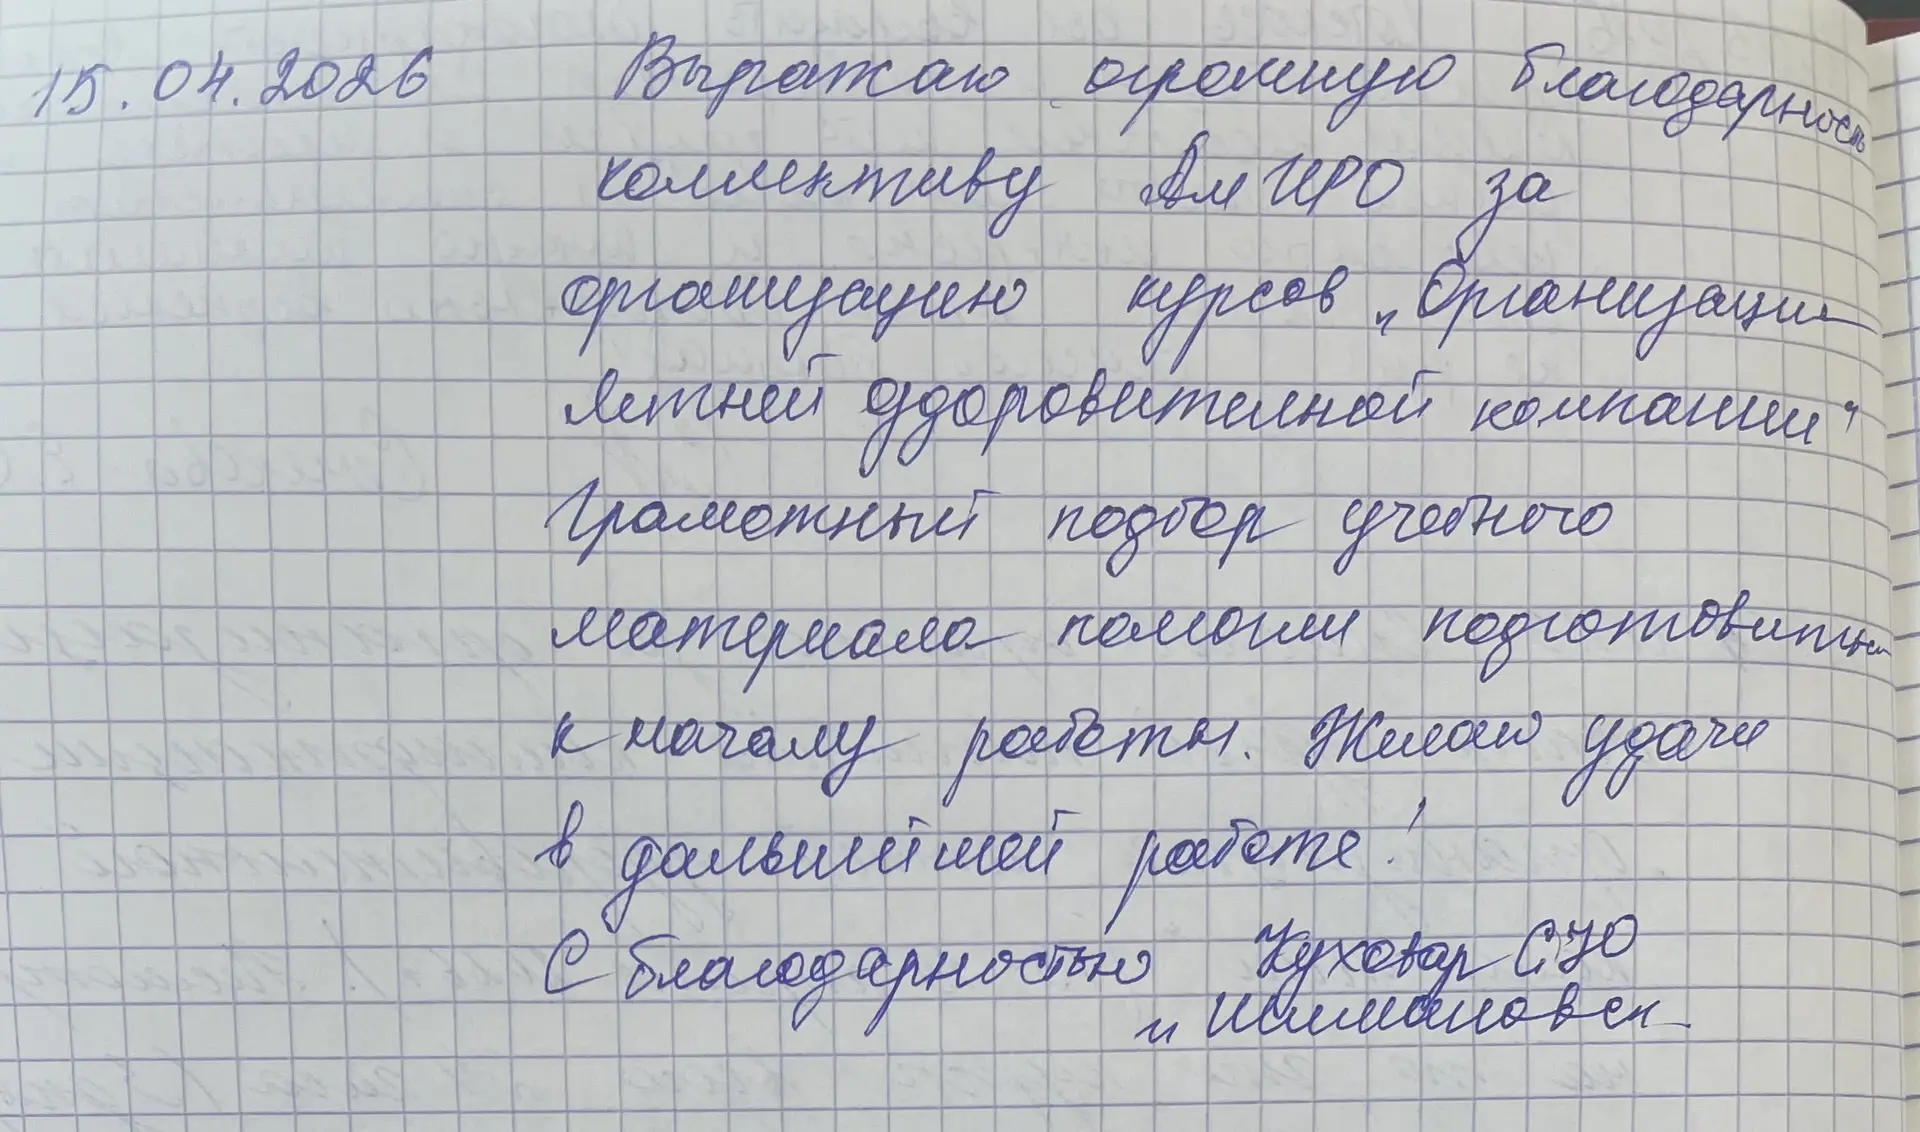 15.04.2026 Выражаю огромную благодарность
коллективу АмИРО за
организацию курсов „Организации
летней оздоровителной компании“
Грамотный подбор учебного
материала помогли подготовиться
к началу работы. Желаю удачи
в дальнейшей работе!
С благодарностью Куховар С.Ю
г Шимановск